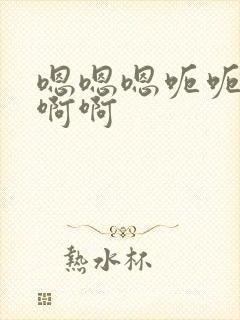 嗯嗯嗯呃呃
啊啊
熱水杯